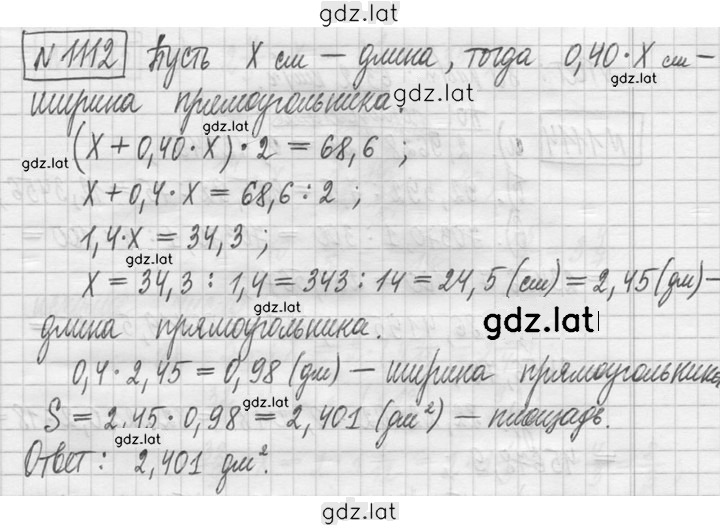 gdz.lat
№ 1112 Пусть X см – длина, тогда 0,40·X см –
gdz.lat
ширина прямоугольника.
gdz.lat
gdz.lat
(X + 0,40·X)·2 = 68,6 ;
gdz.lat
X + 0,4·X = 68,6 : 2 ;
1,4·X = 34,3 ;
X = 34,3 : 1,4 = 343 : 14 = 24,5 (см) = 2,45 (дм) –
gdz.lat
длина прямоугольника.
0,4·2,45 = 0,98 (дм) – ширина прямоугольника
gdz.lat
S = 2,45·0,98 = 2,401 (дм²) – площадь.
gdz.lat
Ответ: 2,401 дм².
gdz.lat
gdz.lat